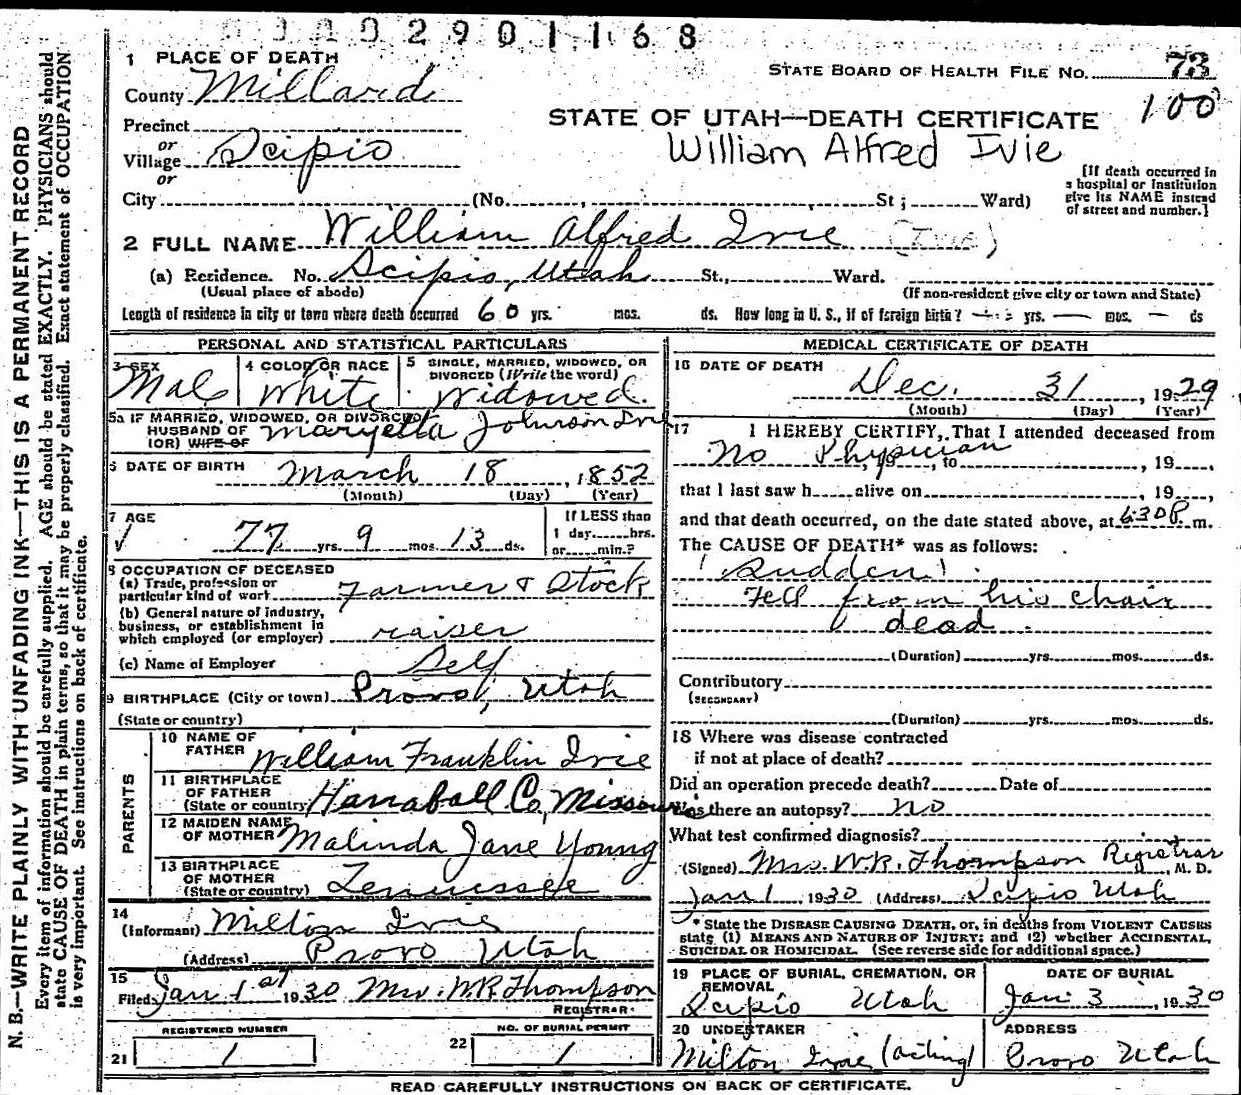 0002901168
1 PLACE OF DEATH
STATE BOARD OF HEALTH FILE NO. 73
County Millard
100
Precinct
STATE OF UTAH—DEATH CERTIFICATE
or
Village Scipio
William Alfred Ivie
or
[If death occurred in
a hospital or institution
give its NAME instead
of street and number.]
City (No. , St ; Ward)
2 FULL NAME William Alfred Ivie (Ivie)
(a) Residence. No. Scipio, Utah St., Ward.
(Usual place of abode) (If non-resident give city or town and State)
Length of residence in city or town where death occurred 60 yrs. mos. ds. How long in U. S., if of foreign birth? yrs. — mos. — ds
PERSONAL AND STATISTICAL PARTICULARS
3 SEX 4 COLOR OR RACE 5 SINGLE, MARRIED, WIDOWED, OR
DIVORCED (Write the word)
Male White Widowed.
5a IF MARRIED, WIDOWED, OR DIVORCED
HUSBAND OF Maryetta Johnson Ivie
(OR) WIFE OF
6 DATE OF BIRTH March 18, 1852
(Month) (Day) (Year)
7 AGE If LESS than
77 yrs. 9 mos. 13 ds. 1 day hrs.
or min.?
8 OCCUPATION OF DECEASED
(a) Trade, profession or
particular kind of work Farmer & Stock
(b) General nature of industry,
business, or establishment in
which employed (or employer) raiser
(c) Name of Employer Self
9 BIRTHPLACE (City or town) Provo, Utah
(State or country)
PARENTS
10 NAME OF
FATHER William Franklin Ivie
11 BIRTHPLACE
OF FATHER
(State or country) Co, Missouri
12 MAIDEN NAME
OF MOTHER Malinda Jane Young
13 BIRTHPLACE
OF MOTHER
(State or country) Tennessee
14
(Informant) Milton Ivie
(Address) Provo Utah
15
Filed Jan 1st 1930 Mrs. W.R. Thompson
REGISTRAR
REGISTERED NUMBER NO. OF BURIAL PERMIT
21 1 22 1
MEDICAL CERTIFICATE OF DEATH
16 DATE OF DEATH
Dec. 31, 1929
(Month) (Day) (Year)
17 I HEREBY CERTIFY, That I attended deceased from
No Physician, 19, to , 19,
that I last saw h alive on , 19,
and that death occurred, on the date stated above, at 6:30 P. m.
The CAUSE OF DEATH* was as follows:
Sudden
Fell from his chair
dead
(Duration) yrs. mos. ds.
Contributory
(SECONDARY)
(Duration) yrs. mos. ds.
18 Where was disease contracted
if not at place of death?
Did an operation precede death? Date of
Was there an autopsy? no
What test confirmed diagnosis?
(Signed) Mrs. W.R. Thompson Registrar, M. D.
Jan 1 1930 (Address) Scipio Utah
* State the DISEASE CAUSING DEATH, or, in deaths from VIOLENT CAUSES
state (1) MEANS AND NATURE OF INJURY; and (2) whether ACCIDENTAL,
SUICIDAL OR HOMICIDAL. (See reverse side for additional space.)
19 PLACE OF BURIAL, CREMATION, OR
REMOVAL
Scipio Utah
DATE OF BURIAL
Jan 3, 1930
20 UNDERTAKER
Milton Ivie (acting)
ADDRESS
Provo Utah
READ CAREFULLY INSTRUCTIONS ON BACK OF CERTIFICATE.
N. B.—WRITE PLAINLY WITH UNFADING INK—THIS IS A PERMANENT RECORD
Every item of information should be carefully supplied. AGE should be stated EXACTLY. PHYSICIANS should
state CAUSE OF DEATH in plain terms, so that it may be properly classified. Exact statement of OCCUPATION
is very important. See instructions on back of certificate.